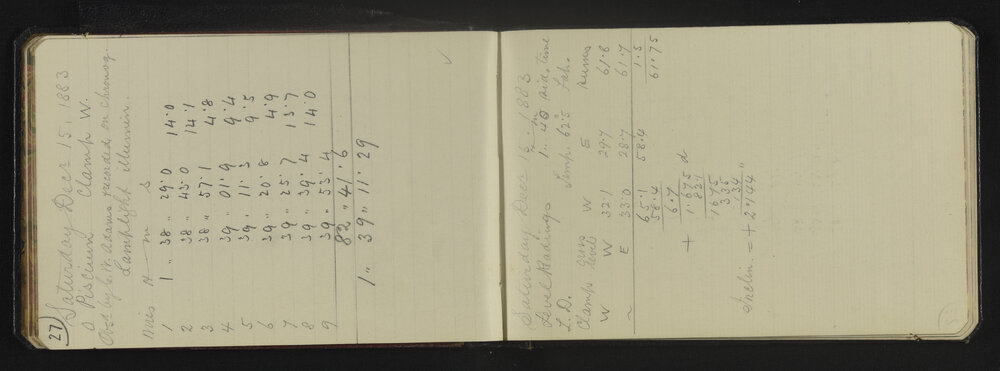 27
Saturday Dec 15, 1883
Piscium Clamp W.
Obsd by C. W. Adams recorded on Chronog.
Lamplight illumin.
Wires H m s
1 1 " 38 " 29.0 14.0
2 38 " 43.0 14.1
3 38 " 57.1 4.8
4 39 " 01.9 9.4
5 39 " 11.3 9.5
6 39 " 20.8 4.9
7 39 " 25.7 13.7
8 39 " 39.4 14.0
9 39 " 53.4
82 " 41.6
1 " 39 " 11.29
Saturday Decr 15. 1883
Level Readings 1.. 40 Sid. time
L. D. Temp. 62.5 Fah.
Clamp W E Sums
W W 32.1 29.7 61.8
~ E 33.0 28.7 61.7
65.1 58.4 1.5
58.4 61.75
6.7
+ 1.675 d
1675
335
134
Inclin. = + 2.144"